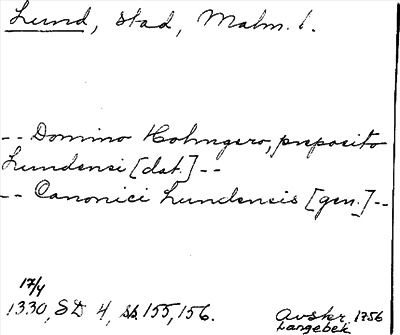 Lund, stad, Malm. l.
-- Domino Holmgero, preposito
Lundensi [dat.] --
-- Canonici Lundensis [gen.] --
17/4
1330, SD 4, s. 155, 156.
Avskr. 1756
Langebek